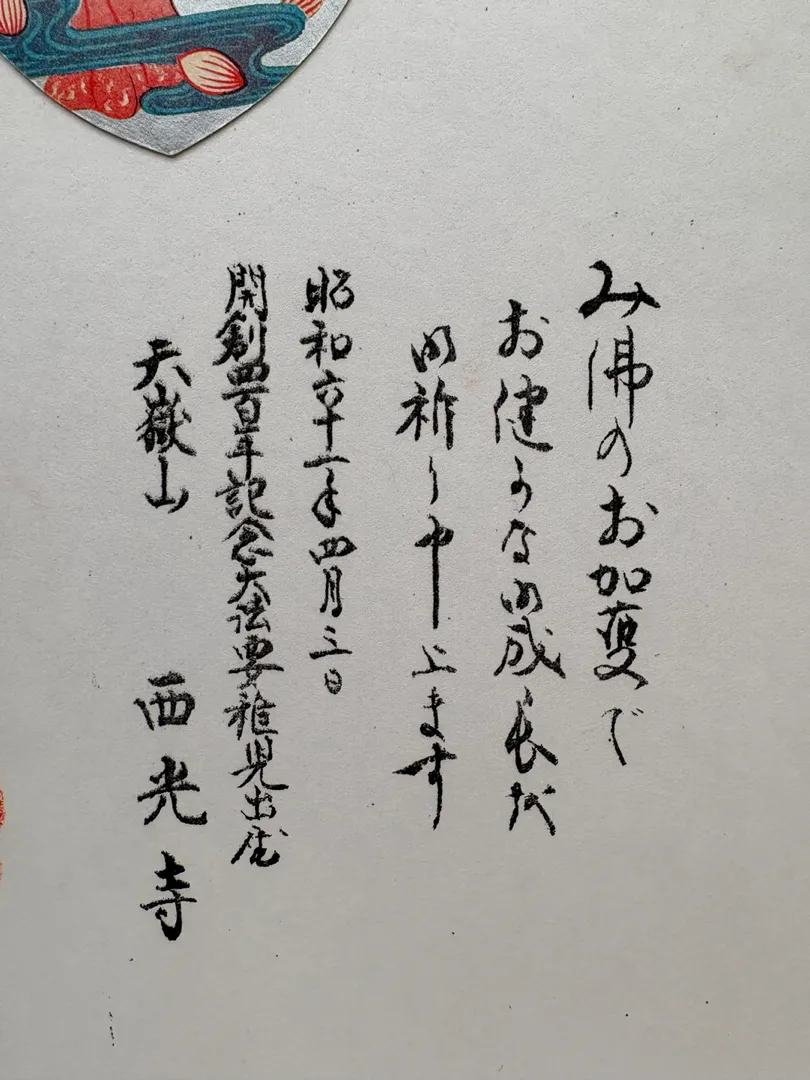 み佛のお加護で
お健かな御成長を
御祈り申上ます
昭和六十一年四月三日
開創四百年記念大法要稚児出仕
天嶽山　西光寺